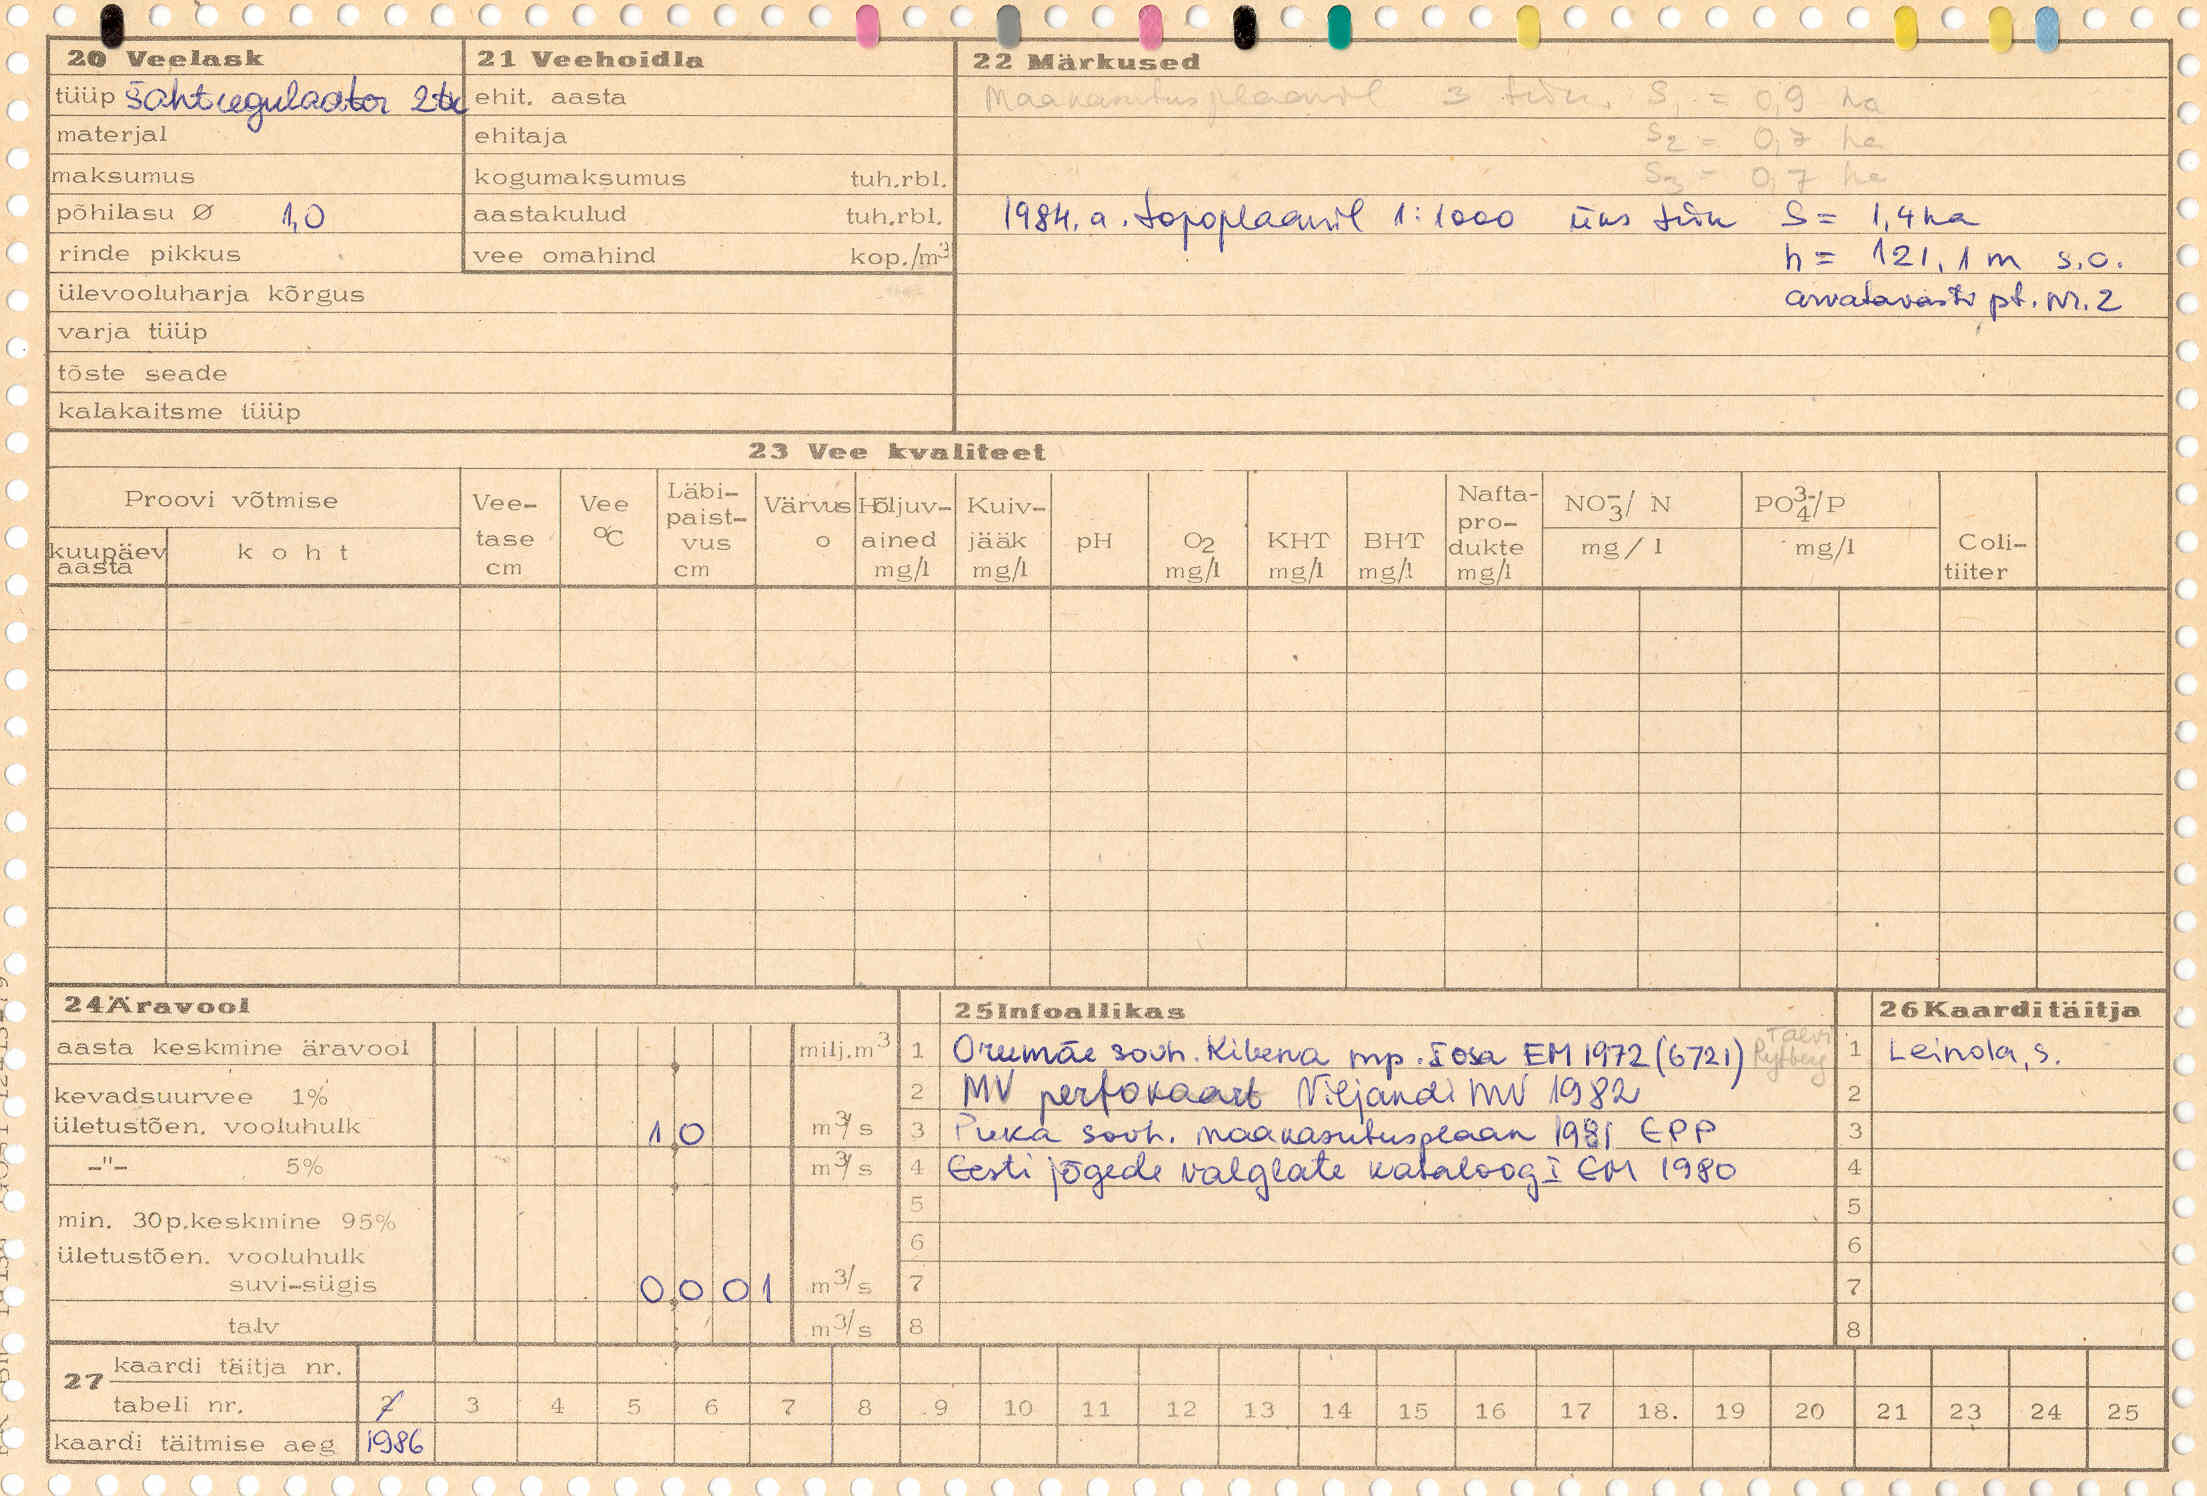 20 Veelask
tüüp Šahtregulaator 2tk
materjal
maksumus
põhilasu Ø 1,0
rinde pikkus
ülevooluharja kõrgus
varja tüüp
tõste seade
kalakaitsme tüüp
21 Veehoidla
ehit. aasta
ehitaja
kogumaksumus tuh.rbl.
aastakulud tuh.rbl.
vee omahind kop./m³
22 Märkused
Maakasutusplaanil 3 tiiki. S₁ = 0,9 ha
S₂ = 0,7 ha
S₃ = 0,7 ha
1984. a. topoplaanil 1:1000 üks tiik S = 1,4 ha
h = 121,1 m s.o.
arvatavasti pt. nr. 2
23 Vee kvaliteet
Proovi võtmise
kuupäev aasta
koht
Vee-tase cm
Vee °C
Läbi-paist-vus cm
Värvus o
Hõljuv-ained mg/l
Kuiv-jääk mg/l
pH
O₂ mg/l
KHT mg/l
BHT mg/l
Nafta-pro-dukte mg/l
NO₃⁻/ N mg/l
PO₄³⁻/P mg/l
Coli-tiiter
24 Äravool
aasta keskmine äravool milj.m³
kevadsuurvee 1%
ületustõen. vooluhulk 1 0 m³/s
-"- 5% m³/s
min. 30p.keskmine 95%
ületustõen. vooluhulk
suvi-sügis 0 0 0 1 m³/s
talv m³/s
25 Infoallikas
1 Orumäe sovh. Kibena mp. I osa EM 1972 (6721)
2 MV perfokaart Viljandi MV 1982
3 Puka sovh. maakasutusplaan 1981 EPP
4 Eesti jõgede valglate kataloog I EM 1980
5
6
7
8
26 Kaardi täitja
1 Leinola, S.
2
3
4
5
6
7
8
27 kaardi täitja nr.
tabeli nr. 2 3 4 5 6 7 8 9 10 11 12 13 14 15 16 17 18. 19 20 21 23 24 25
kaardi täitmise aeg 1986